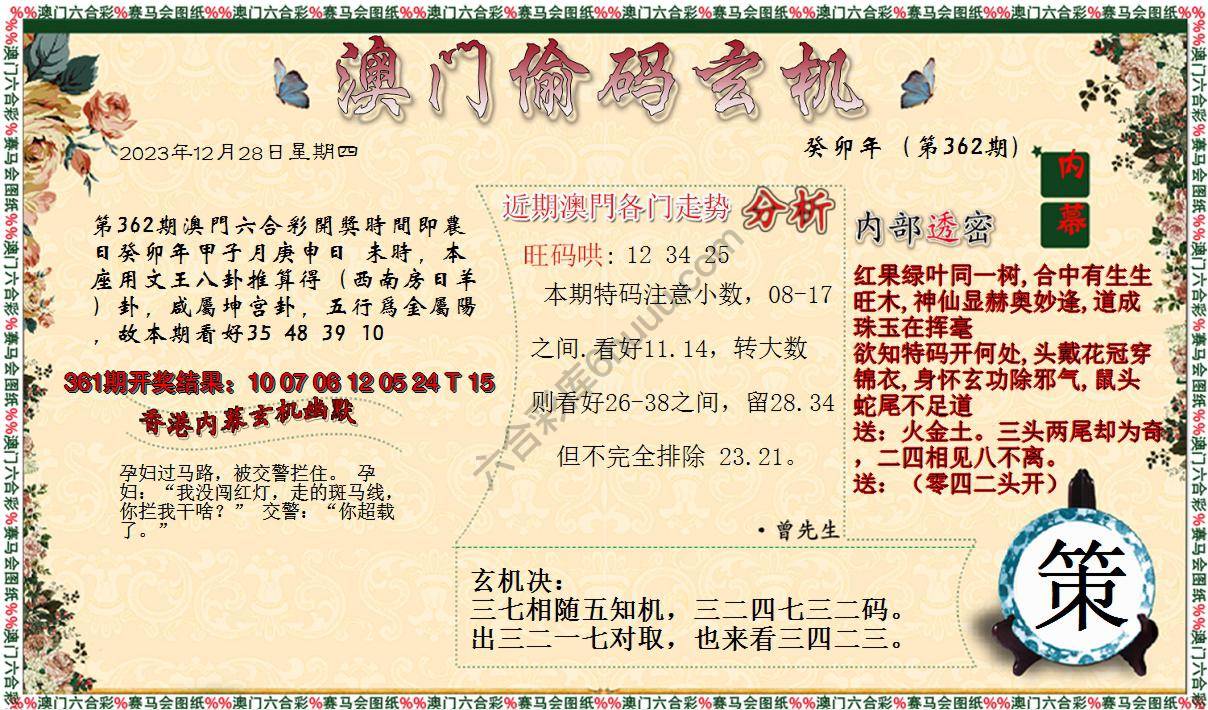 %%澳门六合彩%赛马会图纸%%澳门六合彩%赛马会图纸%%澳门六合彩%赛马会图纸%%澳门六合彩%赛马会图纸%%澳门六合彩%赛马会图纸%%澳门六合彩%赛马会图纸%%
澳门偷码玄机
2023年12月28日星期四
癸卯年（第362期）
内幕
第362期澳門六合彩開獎時間即農
日癸卯年甲子月庚申日 未時，本
座用文王八卦推算得（西南房日羊
）卦，咸屬坤宫卦，五行爲金屬陽
，故本期看好35 48 39 10
361期开奖结果：10 07 06 12 05 24 T 15
香港内幕玄机幽默
孕妇过马路，被交警拦住。 孕
妇：“我没闯红灯，走的斑马线，
你拦我干啥？” 交警：“你超载
了。”
近期澳門各门走势 分析
旺码哄: 12 34 25
本期特码注意小数，08-17
之间.看好11.14，转大数
则看好26-38之间，留28.34
但不完全排除 23.21。
·曾先生
内部透密
红果绿叶同一树,合中有生生
旺木,神仙显赫奥妙逢,道成
珠玉在挥毫
欲知特码开何处,头戴花冠穿
锦衣,身怀玄功除邪气,鼠头
蛇尾不足道
送：火金土。三头两尾却为奇
，二四相见八不离。
送：（零四二头开）
玄机决：
三七相随五知机，三二四七三二码。
出三二一七对取，也来看三四二三。
策